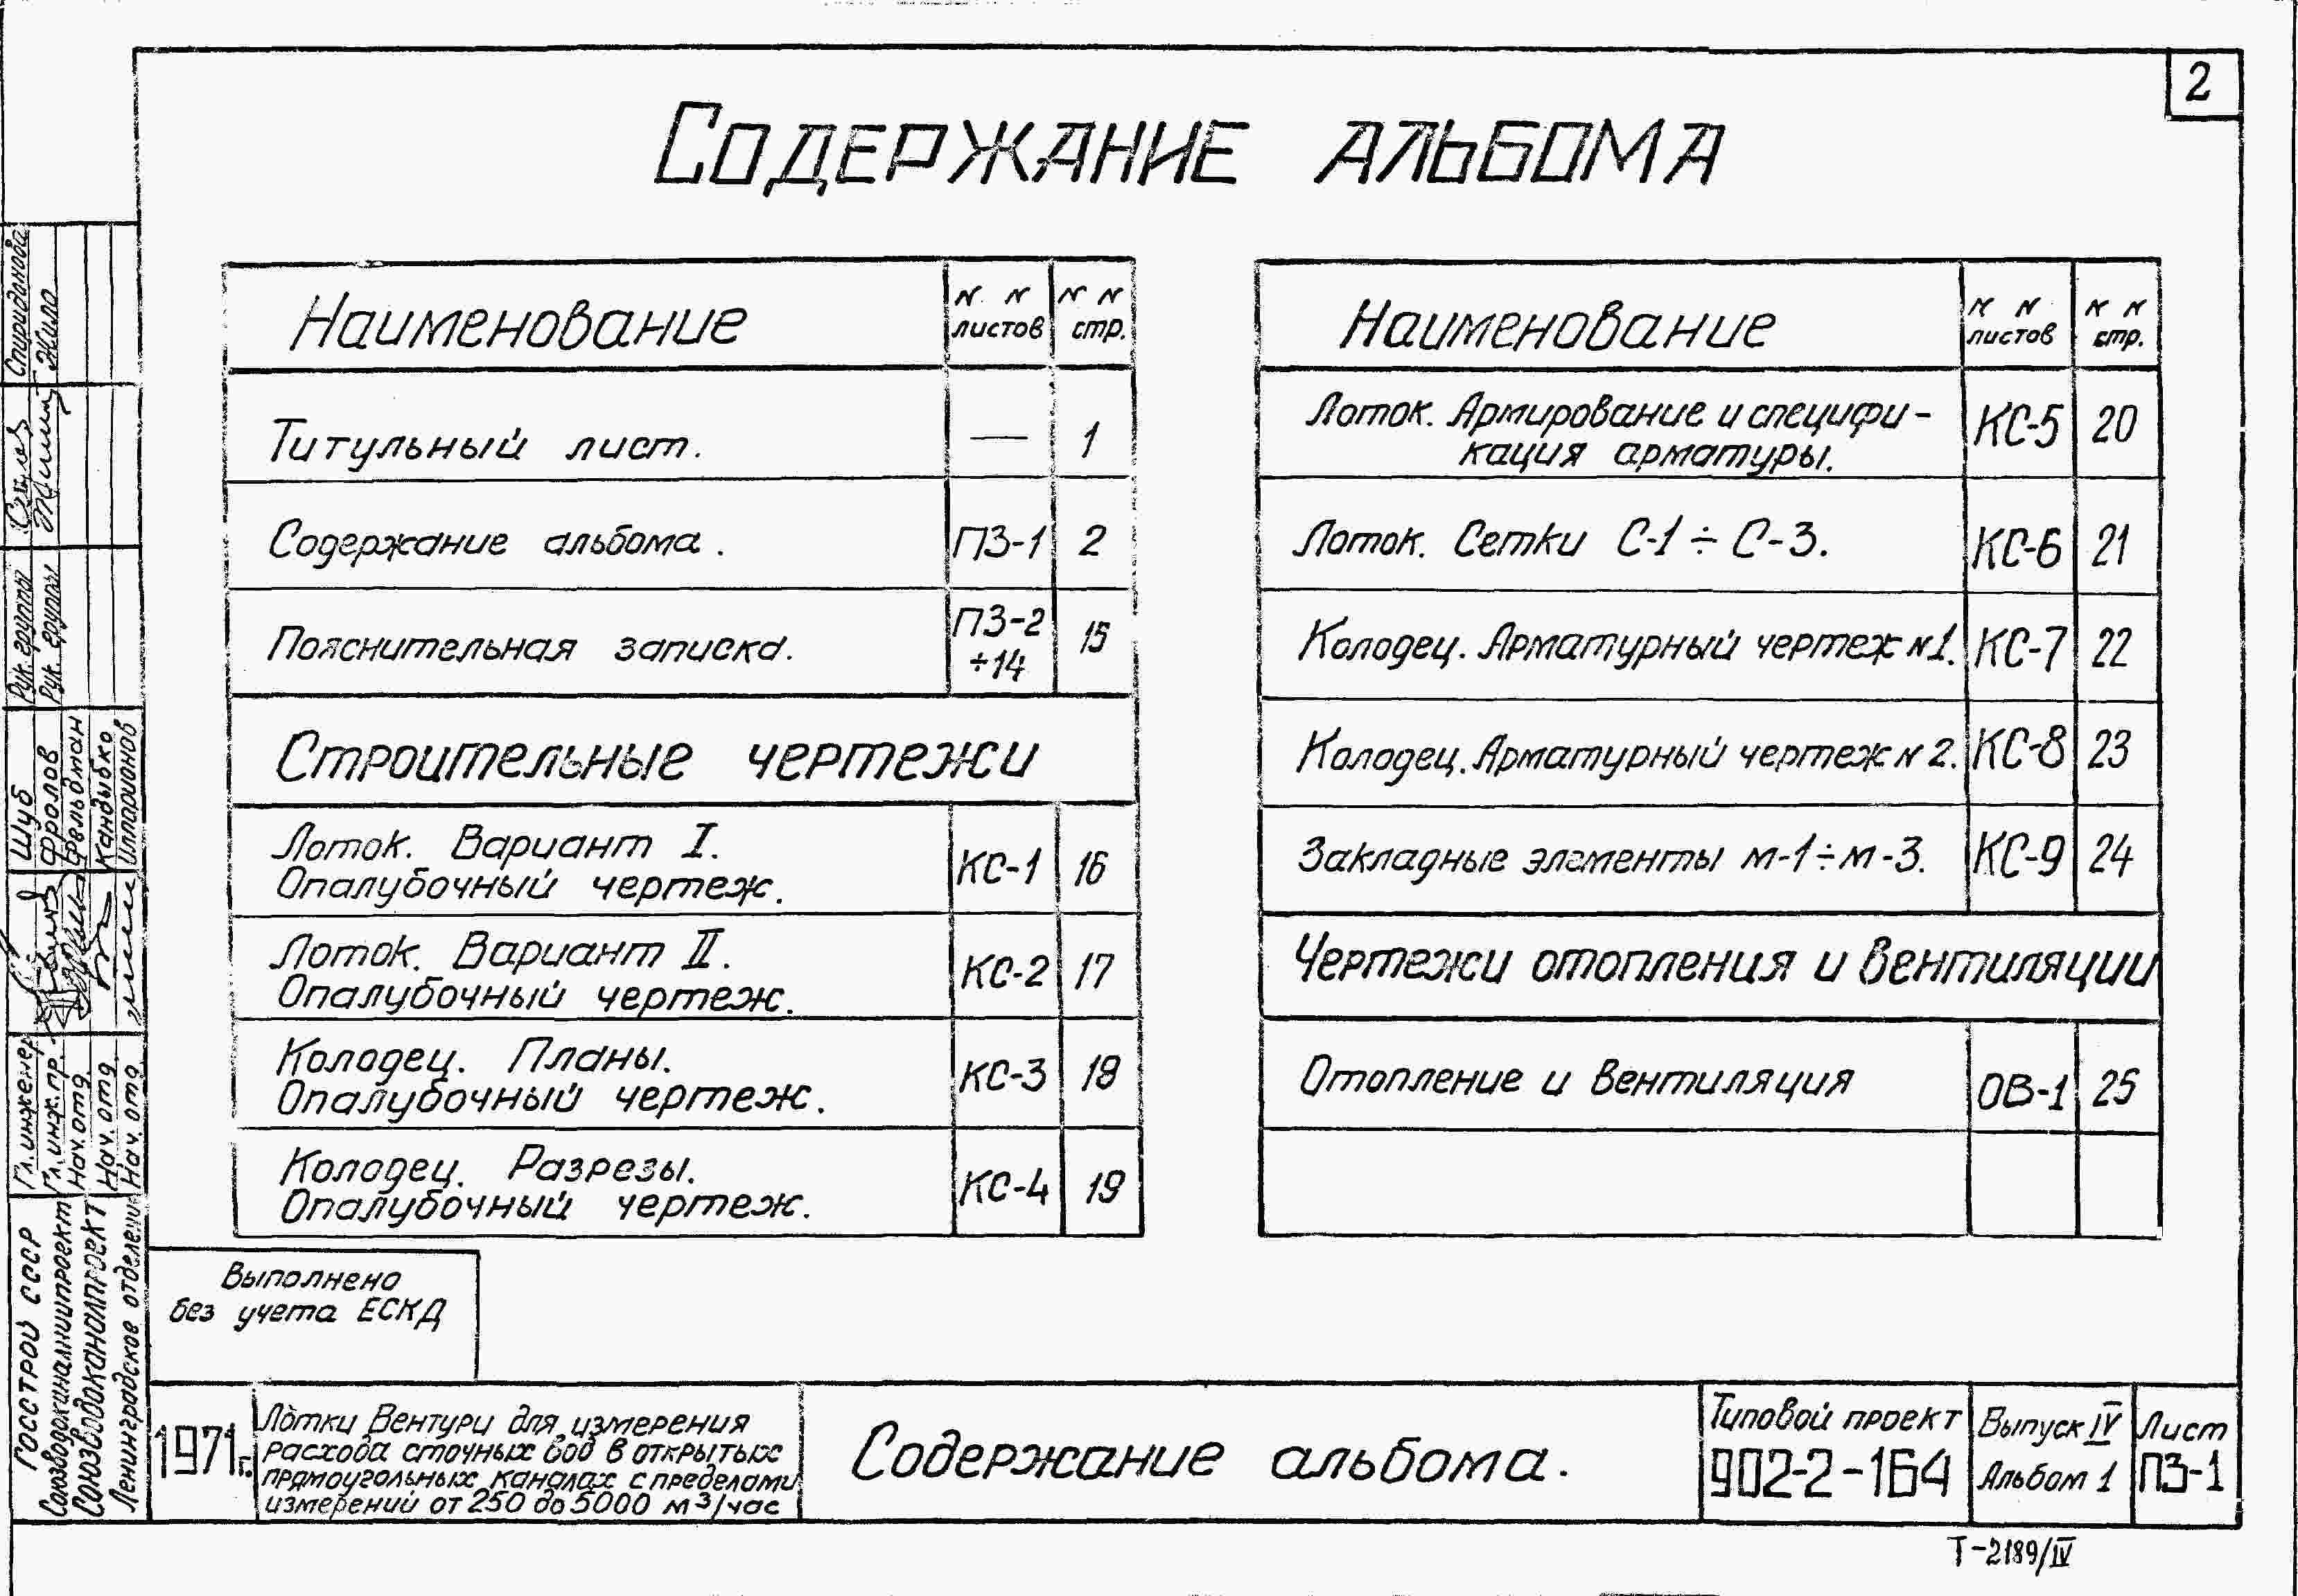 2
Содержание альбома
Наименование
N N листов
N N стр.
Титульный лист.
— 1
Содержание альбома.
ПЗ-1 2
Пояснительная записка.
ПЗ-2
÷14
15
Строительные чертежи
Лоток. Вариант I.
Опалубочный чертеж.
КС-1 16
Лоток. Вариант II.
Опалубочный чертеж.
КС-2 17
Колодец. Планы.
Опалубочный чертеж.
КС-3 18
Колодец. Разрезы.
Опалубочный чертеж.
КС-4 19
Наименование
N N листов
N N стр.
Лоток. Армирование и специфи-
кация арматуры.
КС-5 20
Лоток. Сетки С-1 ÷ С-3.
КС-6 21
Колодец. Арматурный чертеж N 1.
КС-7 22
Колодец. Арматурный чертеж N 2.
КС-8 23
Закладные элементы М-1÷М-3.
КС-9 24
Чертежи отопления и вентиляции
Отопление и вентиляция
ОВ-1 25
Выполнено
без учета ЕСКД
1971г.
Лотки Вентури для измерения
расхода сточных вод в открытых
прямоугольных каналах с пределами
измерений от 250 до 5000 м³/час
Содержание альбома.
Типовой проект
902-2-164
Выпуск IV
Альбом 1
Лист
ПЗ-1
Т-2189/IV
Госстрой СССР
Союзводоканалниипроект
Союзводоканалпроект
Ленинградское отделение
Гл. инженер
Гл. инж. пр.
Нач. отд.
Нач. отд.
Нач. отд.
Шуб
Фролов
Фельдман
Кандыбко
Илларионов
Рук. группы
Рук. группы
Спиридонова
Жило